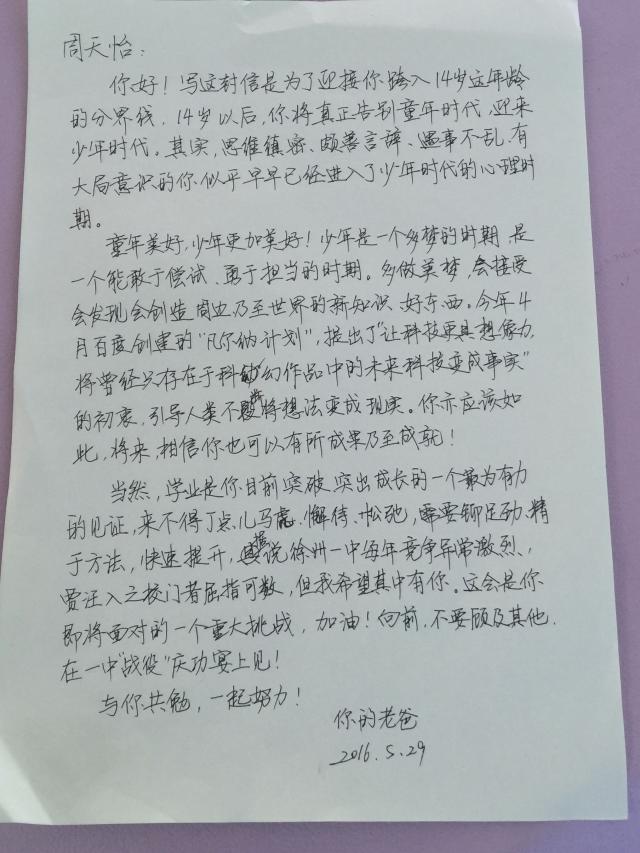 周天怡：
你好！写这封信是为了迎接你跨入14岁这年龄
的分界线，14岁以后，你将真正告别童年时代，迎来
少年时代。其实，思维缜密、颇善言辞、遇事不乱、有
大局意识的你似乎早早已经进入了少年时代的心理时
期。
童年美好，少年更加美好！少年是一个多梦的时期，是
一个能敢于偿试、勇于担当的时期。多做美梦，会接受
会发现会创造周边乃至世界的新知识、好东西。今年4
月百度创建的“凡尔纳计划”，提出了“让科技更具想像力，
将曾经只存在于科幻作品中的未来科技变成事实”
的初衷，引导人类不断将想法变成现实。你亦应该如
此，将来，相信你也可以有所成果乃至成就！
当然，学业是你目前突破、突出成长的一个最为有力
的见证，来不得丁点儿马虎、懈待、松弛，需要铆足劲、精
于方法，快速提升，据说徐州一中每年竞争异常激烈，
贾汪入之校门者屈指可数，但我希望其中有你。这会是你
即将面对的一个重大挑战，加油！向前，不要顾及其他，
在一中“战役”庆功宴上见！
与你共勉，一起努力！
你的老爸
2016.5.29